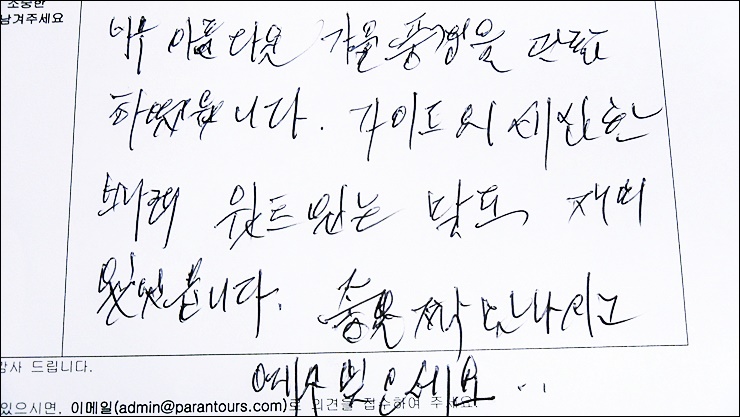 소중한
남겨주세요
매우 아름다운 가을풍경을 관람
하였읍니다. 가이드의 세심한
배려 위트있는 말도 재미
있었읍니다. 좋은 짝 만나시고
예수 믿으세요...
감사 드립니다.
있으시면, 이메일(admin@parantours.com)로 의견을 접수하여 주세요.